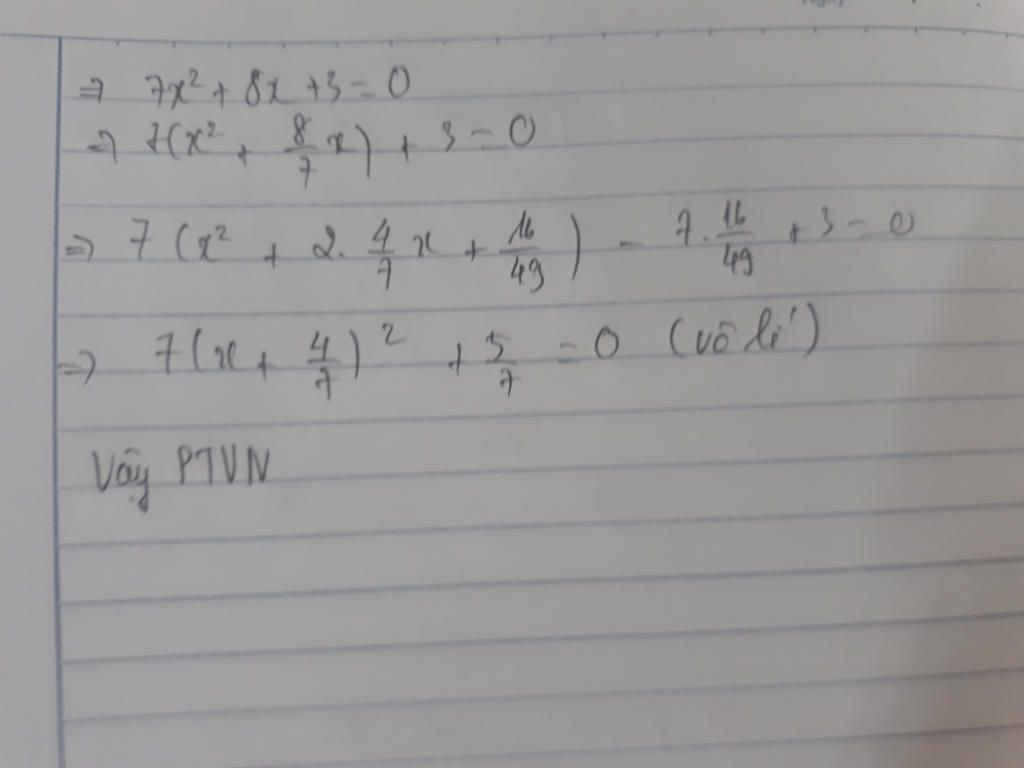 ⇒ 7x² + 8x + 3 = 0
⇒ 7(x² + 8/7 x) + 3 = 0
⇒ 7(x² + 2. 4/7 x + 16/49) - 7. 16/49 + 3 = 0
⇒ 7(x + 4/7)² + 5/7 = 0 (vô lí)
Vậy PTVN